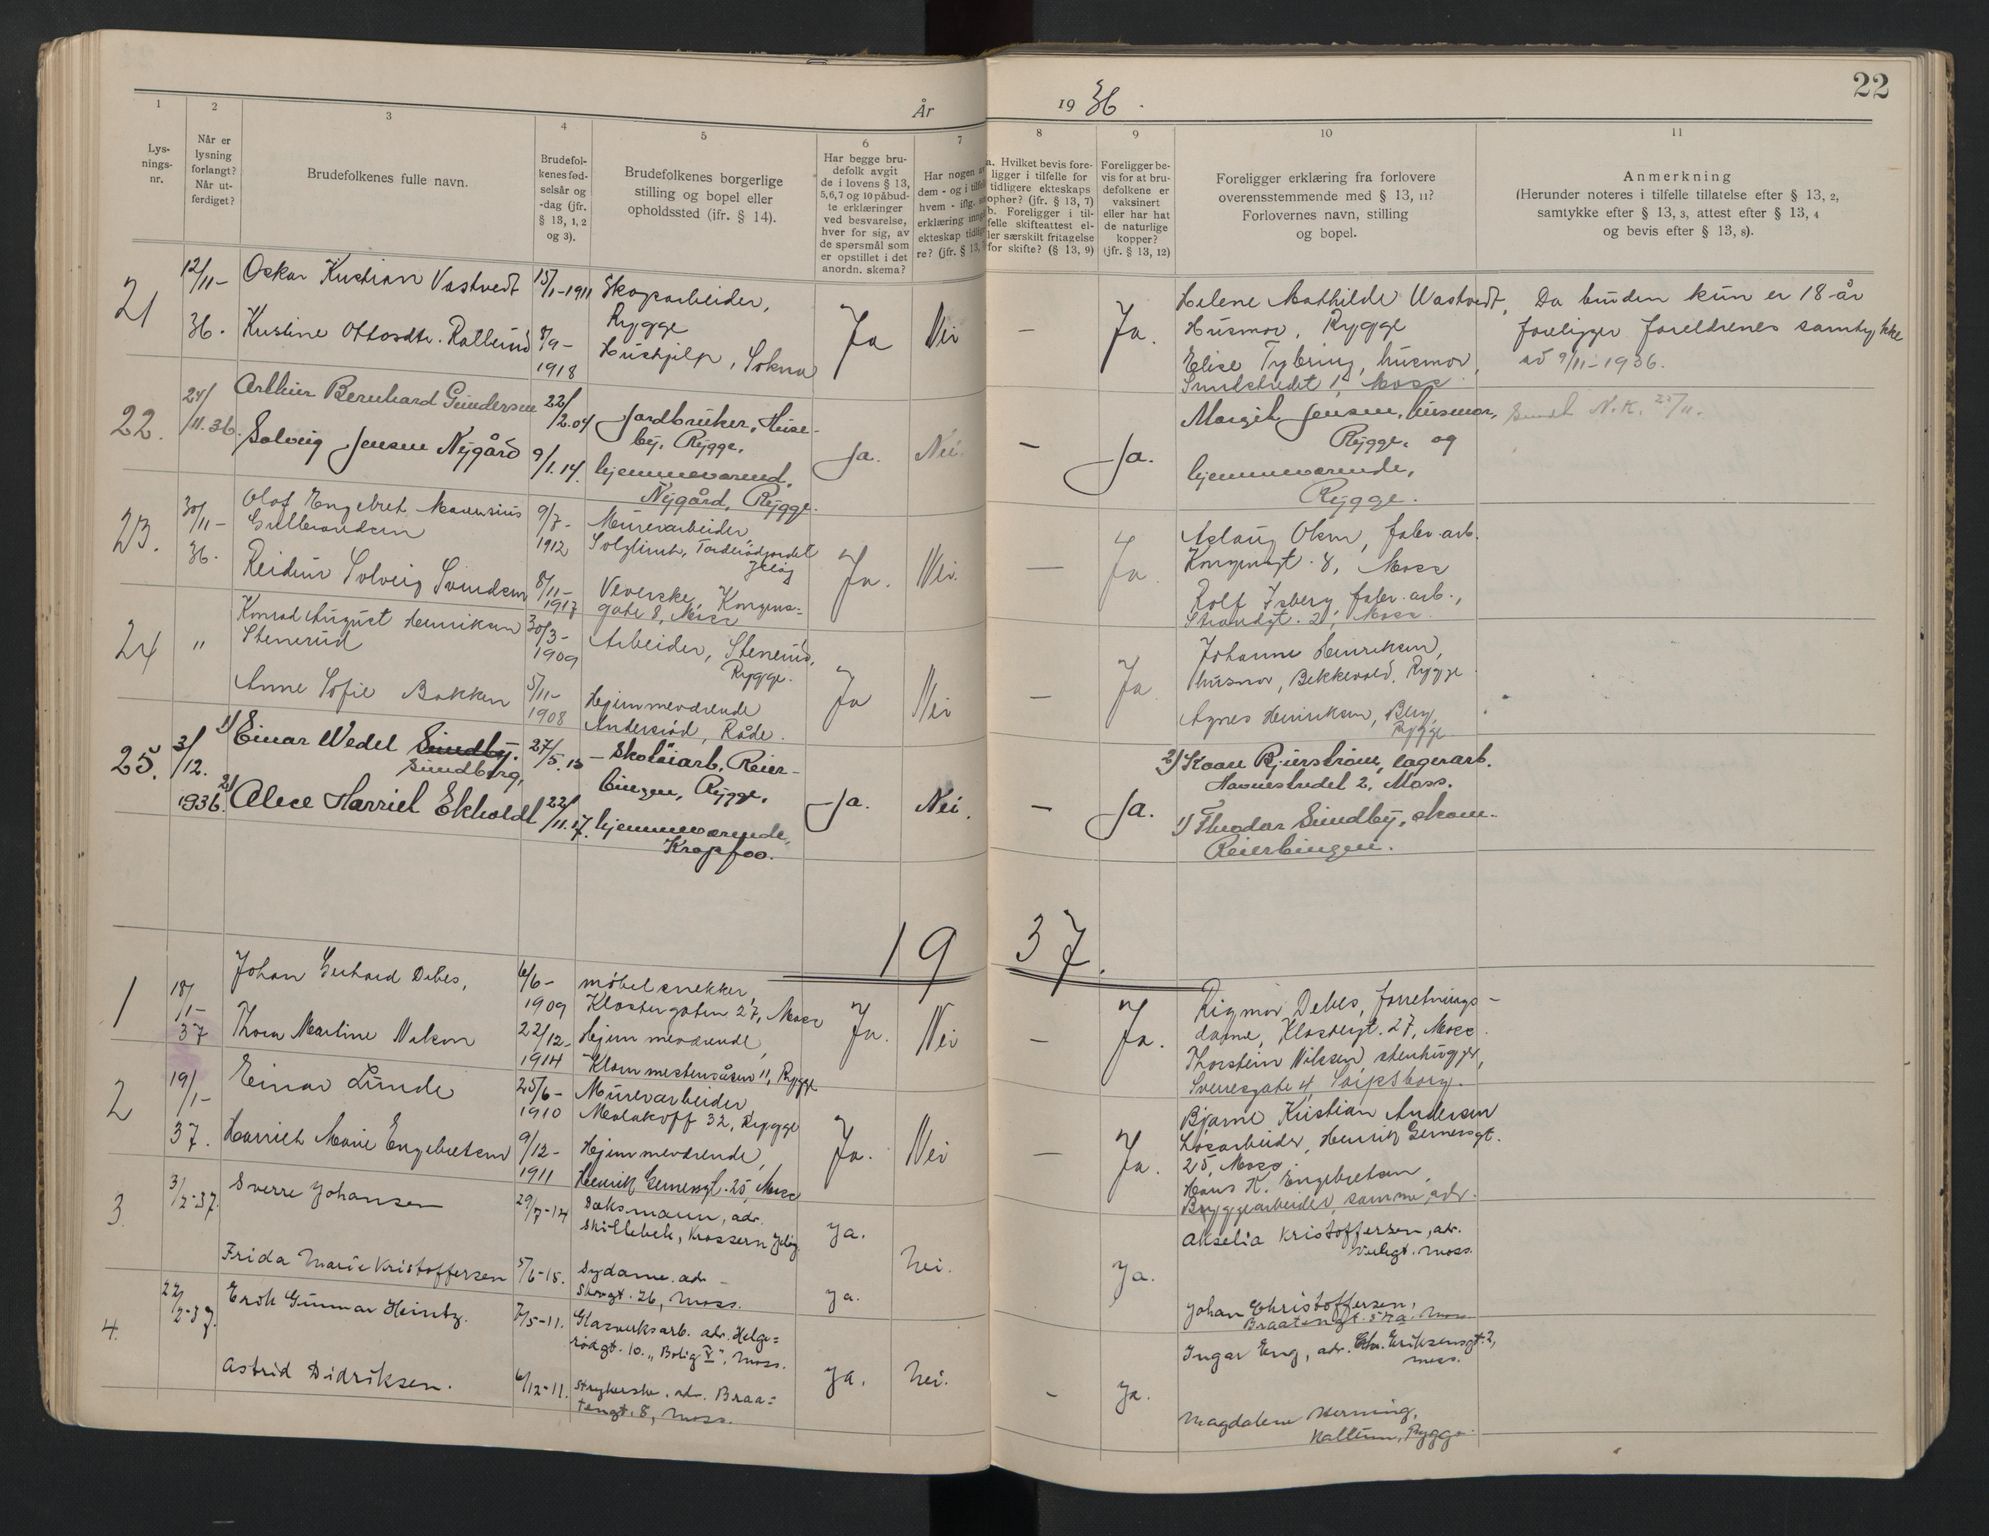 22
År 1936.
1
2
3
4
5
6
7
8
9
10
11
Lys-
nings-
nr.
Når er
lysning
forlangt?
Når ut-
ferdiget?
Brudefolkenes fulle navn.
Brudefol-
kenes fød-
selsår og
-dag (jfr.
§ 13, 1, 2
og 3).
Brudefolkenes borgerlige
stilling og bopel eller
opholdssted (jfr. § 14).
Har begge bru-
defolk avgit
de i lovens § 13,
5,6,7 og 10 påbud-
te erklæringer
ved besvarelse,
hver for sig, av
de spørsmål som
er opstillet i det
anordn. skema?
Har nogen av
dem - og i tilfelle
hvem - iflg.
erklæring inngå
ekteskap tidlige
re? (jfr. § 13,
a. Hvilket bevis fore-
ligger i tilfelle for
tidligere ekteskaps
ophør? (jfr. § 13, 7)
b. Foreligger i til-
felle skifteattest el-
ler særskilt fritagelse
for skifte? (§ 13, 9)
Foreligger be-
vis for at bru-
defolkene er
vaksinert
eller har hat
de naturlige
kopper?
(jfr. § 13, 12)
Foreligger erklæring fra forlovere
overensstemmende med § 13, 11?
Forlovernes navn, stilling
og bopel.
Anmerkning
(Herunder noteres i tilfelle tillatelse efter § 13, 2,
samtykke efter § 13, 3, attest efter § 13, 4
og bevis efter § 13, 8).
21
12/11-
36.
Oskar Kristian Vastvedt
Kristine Ottosdtr. Rallerud
15/1-1911
8/9-
1918
Skoparbeider,
Rygge
Hushjelp, Sokna
Ja
Nei
–
Ja.
Helene Mathilde Vastvedt,
Husmor, Rygge
Elise Tybring, husmor,
1, Moss
Da bruden kun er 18 år
foreligger foreldrenes samtykke
av 9/11-1936.
22.
24/
11.36.
Arthur Bernhard Gundersen
Solveig Jensen Nygård
22/
2.04
9/1.14.
Jordbruker, Huse-
by, Rygge.
hjemmeværend.
Nygård, Rygge.
Ja.
Nei.
–
Ja.
Margit Jensen, husmor,
Rygge. og
hjemmeværende,
Rygge.
Sendt N.K. 25/11.
23.
30/11-
36.
Olof Engebret Maurusius
Gulbrandsen
Reidun Solveig Svendsen
9/7-
1912
8/11-
1917
Murerarbeider
Jeløy
Veverske, Kongens=
gate 8, Moss
Ja.
Nei.
–
Ja.
Aslaug Olsen, fabr. arb.
Kongensgt. 8, Moss
Rolf Isberg, fabr. arb.,
Strandgt. 2, Moss.
24
"
Konrad August Henriksen
Stenerud
Anne Sofie Bakken
30/3-
1909
5/11-
1908
Arbeider, Stenerud,
Rygge.
Hjemmeværende
Andersrød, Råde.
Ja
Nei
–
Ja
Johanne Henriksen,
husmor, Bekkevold, Rygge
Agnes Henriksen, Berg,
Rygge
25.
3/
12.
1936.
1) Einar Wedel Sundby.
Sundberg,
2) Alice Harriet Ekholdt
27/5.15
22/
11.17.
– Skotøiarb. Reier-
bingen, Rygge,
hjemmeværende,
Kropfoo.
Ja.
Nei.
–
Ja.
2) Kaare Bjerstrøm, lagerarb.
Havnestredet 2, Moss.
1) Theodor Sundby, skom.
Reierbingen.
1937.
1
18/
1-
37
Johan Gerhard Debes,
Thora Martine Nilsen
6/6-
1909
22/12-
1914
møbelsnekker,
Klostergaten 27, Moss
Hjemmeværende,
11, Rygge
Ja.
Nei
–
Ja.
Rigmor Debes, forretnings-
dame, Klostergt. 27, Moss.
Thorstein Nilsen stenhugger,
Sverresgate 4, Sarpsborg.
2
19/
1-
37.
Einar Lunde
Harriet Marie Engebretsen
25/6-
1910
9/12-
1911
Murerarbeider
Malakoff 32, Rygge
Hjemmeværende,
Henrik Gernersgt. 25, Moss
Ja.
Nei
–
Ja.
Bjarne Kristian Andersen
Løsarbeider, Henrik Gernersgt.
25, Moss
Hans K. Engebretsen,
Bryggearbeider, samme adr.
3.
3/2-37.
Sverre Johansen
Frida Marie Kristoffersen
29/7-14
5/6-15.
Dæksmann, adr.
Skillebek, Krossern Jeløy.
Sydame. adr
Skogt. 26, Moss.
Ja.
Ja.
Nei.
Ja.
Akselia Kristoffersen, adr.
Varlegt. Moss.
Johan Christoffersen,
Braatengt. 57a, Moss
4.
22/2-37.
Erik Gunnar Heintz.
Astrid Didriksen.
7/5-11.
6/12-11.
Glasverksarb. adr. Helge=
rødgt. 10. „Bolig V", Moss.
Strykerske. adr. Braa=
tengt. 8, Moss.
Ja.
Nei.
–
Ja.
Ingar Eng, adr. Chr. Eriksensgt. 2,
Moss.
Magdalene Herning,
Kallum, Rygge.